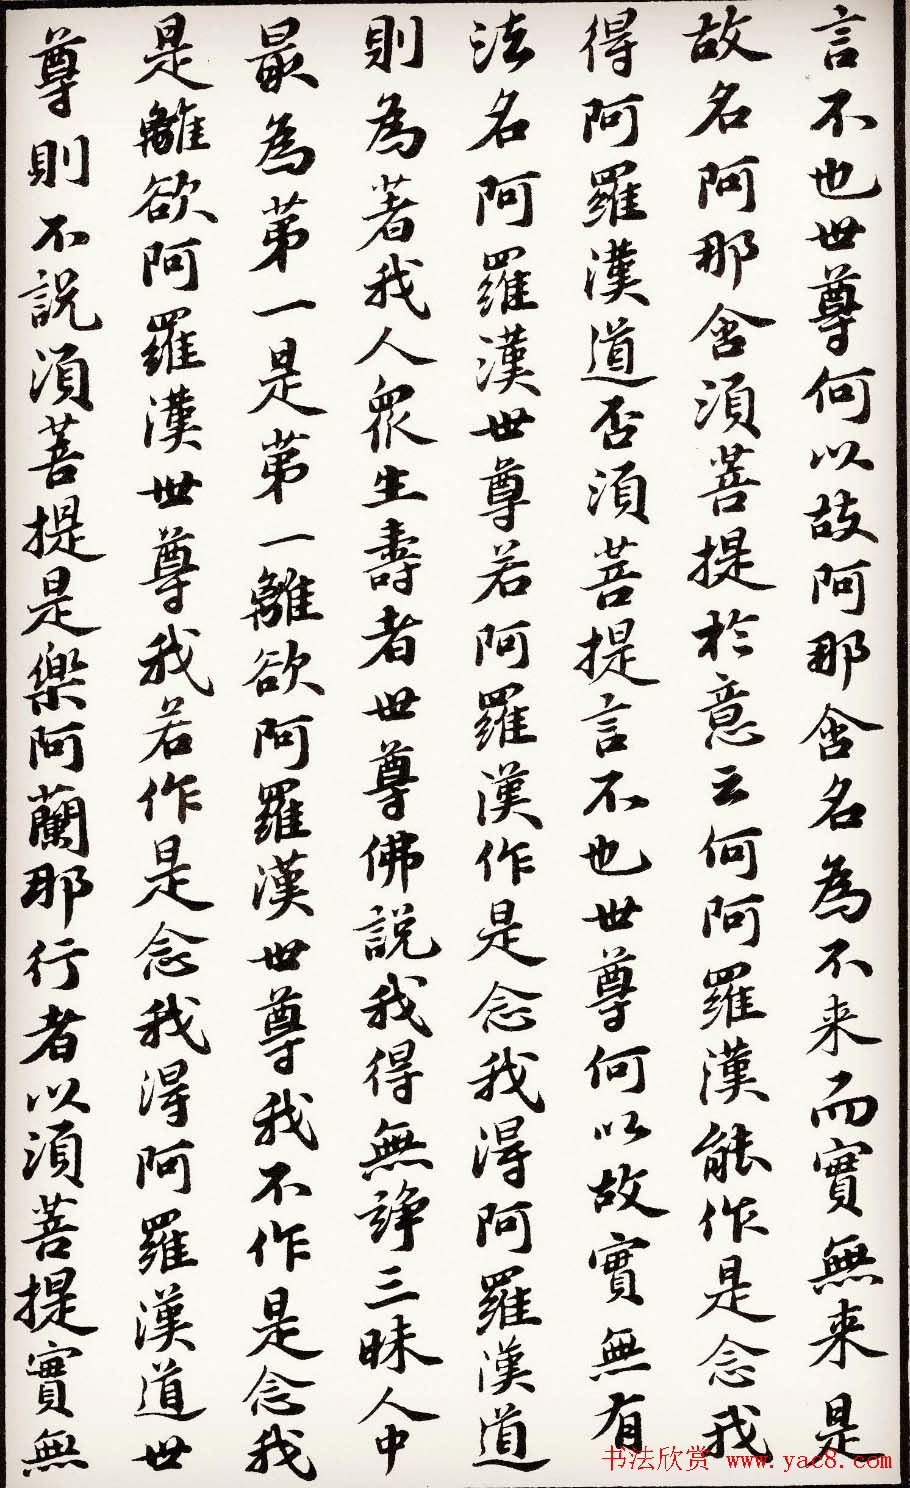 言不也世尊何以故阿那含名為不来而實無来是
故名阿那含須菩提於意云何阿羅漢能作是念我
得阿羅漢道否須菩提言不也世尊何以故實無有
法名阿羅漢世尊若阿羅漢作是念我得阿羅漢道
則為著我人眾生壽者世尊佛說我得無諍三昧人中
最為第一是第一離欲阿羅漢世尊我不作是念我
是離欲阿羅漢世尊我若作是念我得阿羅漢道世
尊則不說須菩提是樂阿蘭那行者以須菩提實無
书法欣赏 www.yac8.com